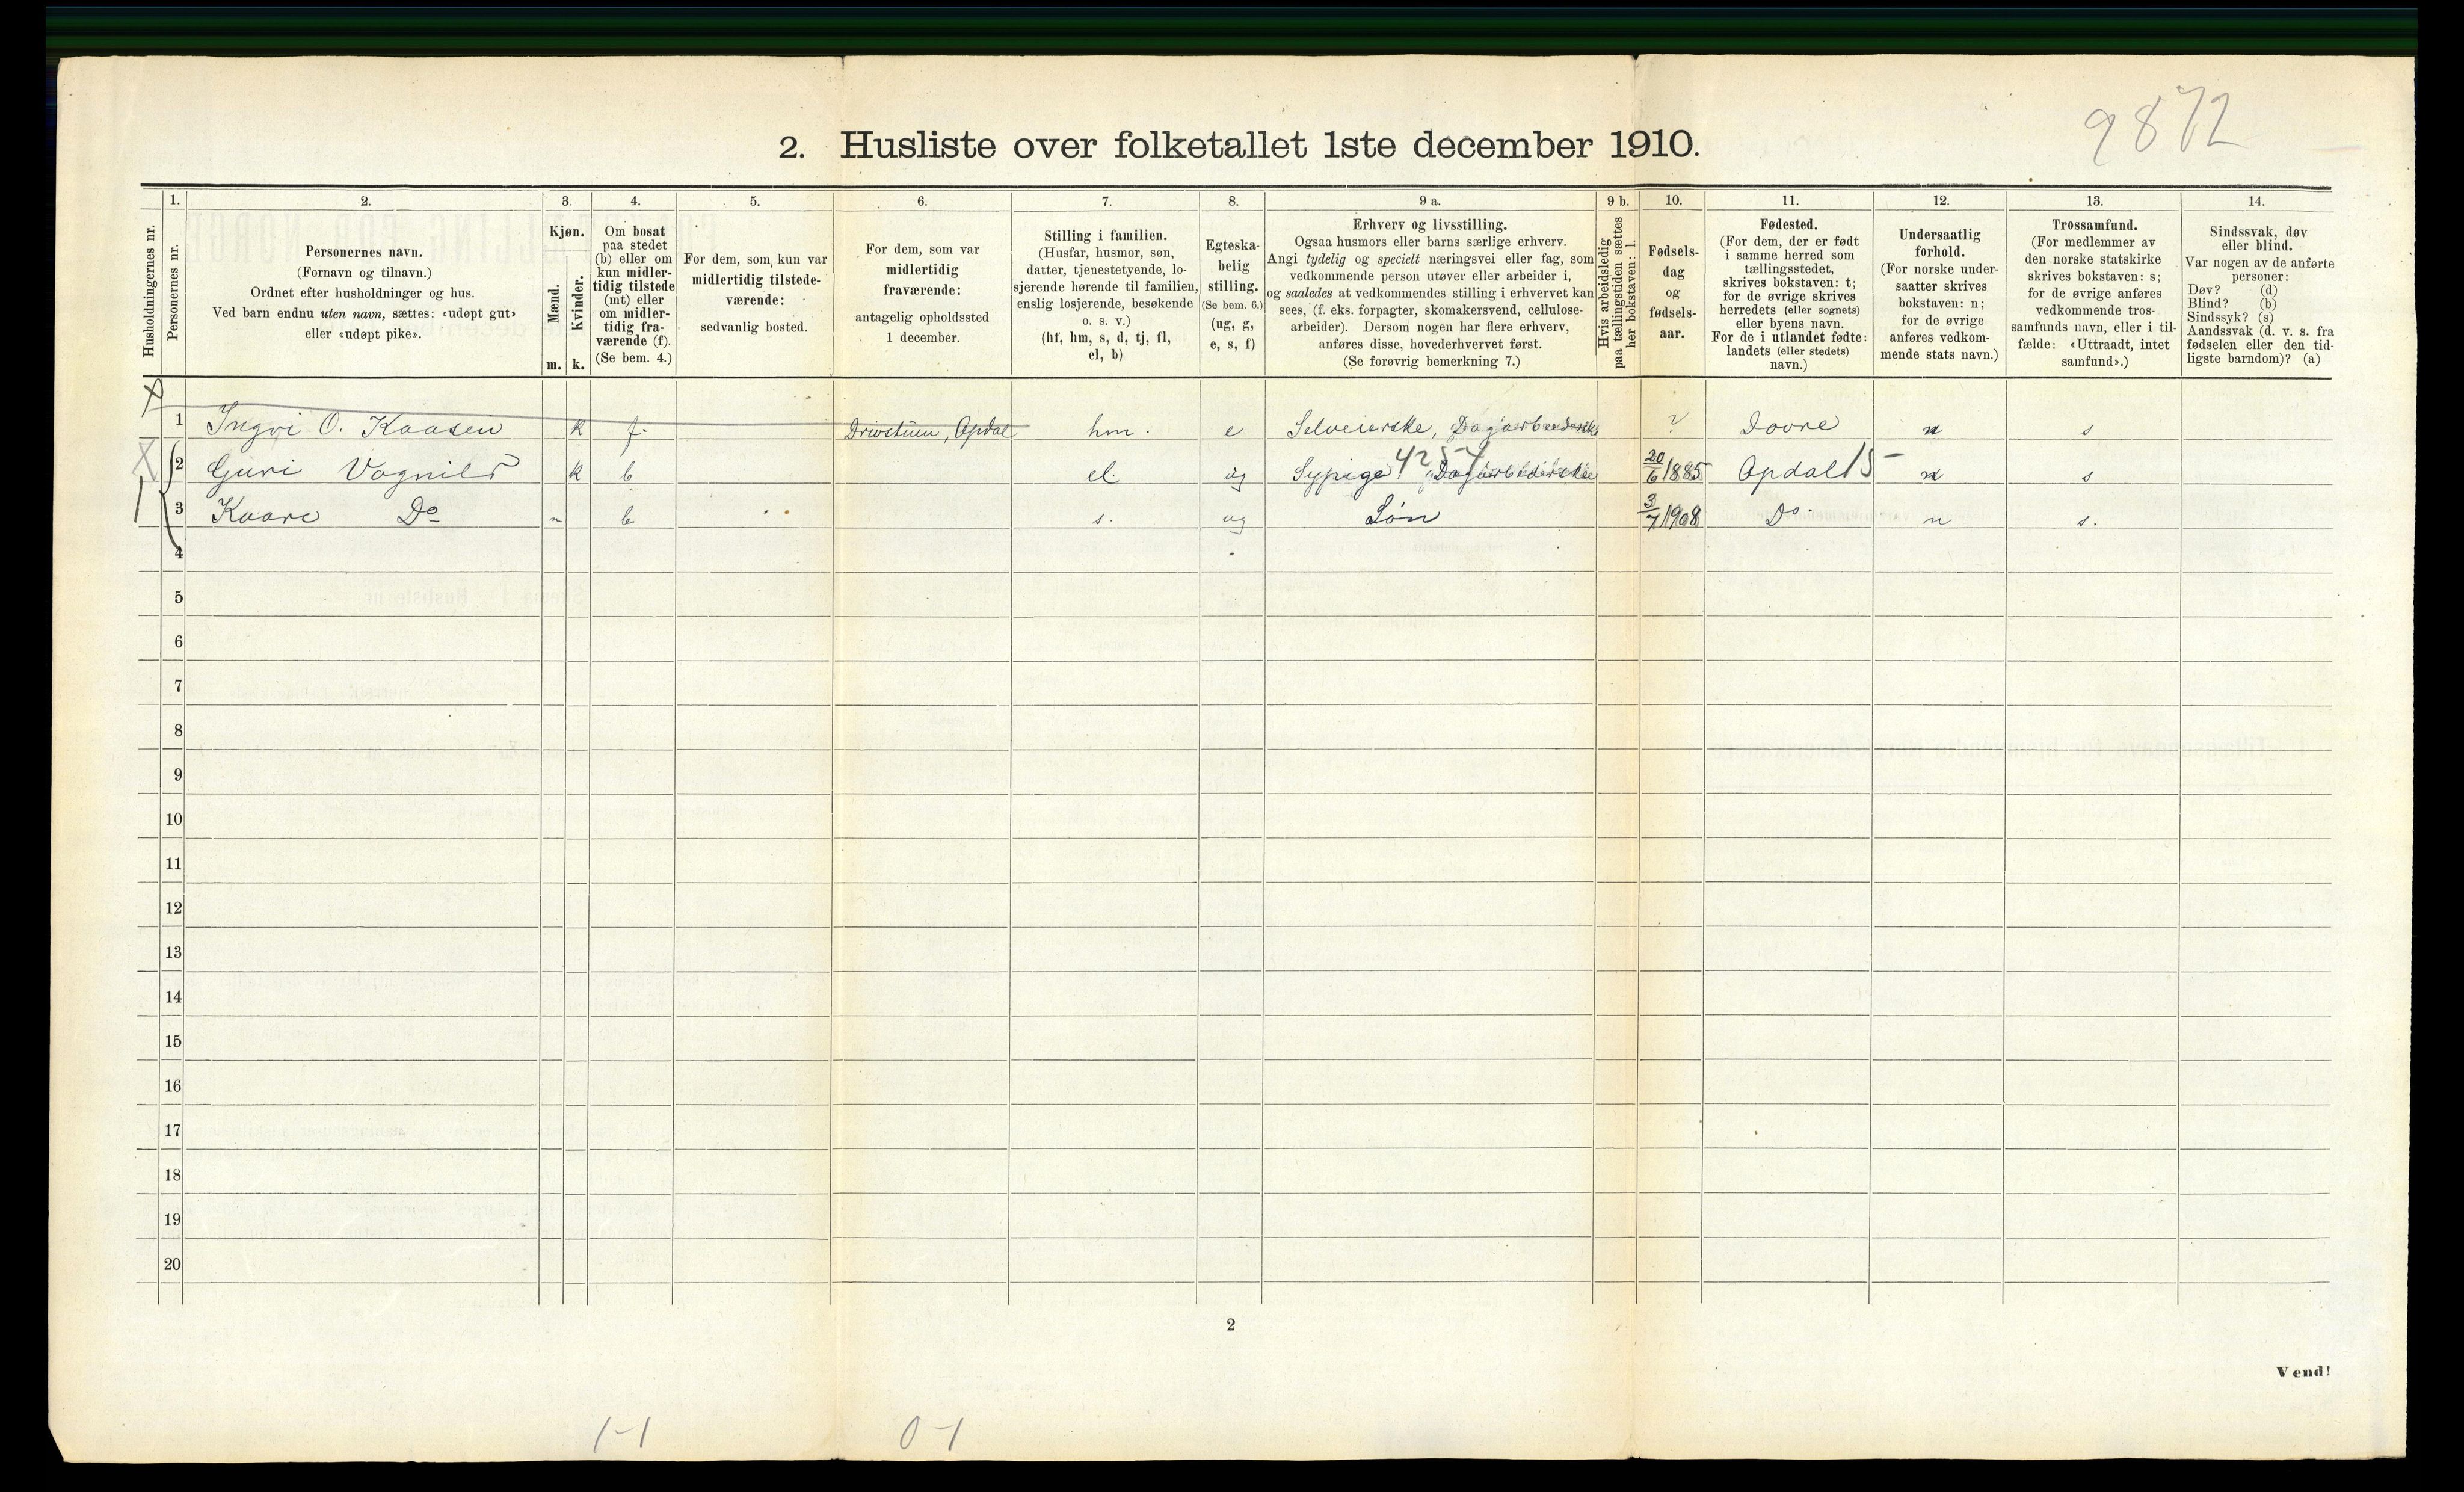 9872
2. Husliste over folketallet 1ste december 1910.
Husholdningernes nr.
1.
Personernes nr.
2.
Personernes navn.
(Fornavn og tilnavn.)
Ordnet efter husholdninger og hus.
Ved barn endnu uten navn, sættes: «udøpt gut»
eller «udøpt pike».
3.
Kjøn.
Mænd.
Kvinder.
m. k.
4.
Om bosat
paa stedet
(b) eller om
kun midler-
tidig tilstede
(mt) eller
om midler-
tidig fra-
værende (f).
(Se bem. 4.)
5.
For dem, som kun var
midlertidig tilstede-
værende:
sedvanlig bosted.
6.
For dem, som var
midlertidig
fraværende:
antagelig opholdssted
1 december.
7.
Stilling i familien.
(Husfar, husmor, søn,
datter, tjenestetyende, lo-
sjerende hørende til familien,
enslig losjerende, besøkende
o. s. v.)
(hf, hm, s, d, tj, fl,
el, b)
8.
Egteska-
belig
stilling.
(Se bem. 6.)
(ug, g,
e, s, f)
9 a.
Erhverv og livsstilling.
Ogsaa husmors eller barns særlige erhverv.
Angi tydelig og specielt næringsvei eller fag, som
vedkommende person utøver eller arbeider i,
og saaledes at vedkommendes stilling i erhvervet kan
sees, (f. eks. forpagter, skomakersvend, cellulose-
arbeider). Dersom nogen har flere erhverv,
anføres disse, hovederhvervet først.
(Se forøvrig bemerkning 7.)
9 b.
Hvis arbeidsledig
paa tællingstiden sættes
her bokstaven: l.
10.
Fødsels-
dag
og
fødsels-
aar.
11.
Fødested.
(For dem, der er født
i samme herred som
tællingsstedet,
skrives bokstaven: t;
for de øvrige skrives
herredets (eller sognets)
eller byens navn.
For de i utlandet fødte:
landets (eller stedets)
navn.)
12.
Undersaatlig
forhold.
(For norske under-
saatter skrives
bokstaven: n;
for de øvrige
anføres vedkom-
mende stats navn.)
13.
Trossamfund.
(For medlemmer av
den norske statskirke
skrives bokstaven: s;
for de øvrige anføres
vedkommende tros-
samfunds navn, eller i til-
fælde: «Uttraadt, intet
samfund».)
14.
Sindssvak, døv
eller blind.
Var nogen av de anførte
personer:
Døv? (d)
Blind? (b)
Sindssyk? (s)
Aandssvak (d. v. s. fra
fødselen eller den tid-
ligste barndom)? (a)
X 1 Ingri O. Kaasen k f. Drivstuen, Opdal hm. e Selveierske, Dagarbederske ? Dovre n s
X 2 Guri Vognild k b el. ug Sypige 4254 Dagarbederske 20/6 1885 Opdal 15 n s
3 Kaare Do m b s. ug Søn 3/7 1908 Do. n s.
4
5
6
7
8
9
10
11
12
13
14
15
16
17
18
19
20
2
Vend!
1-1 0-1